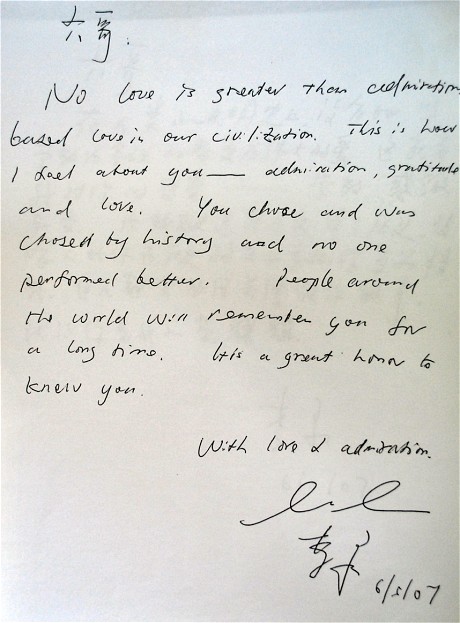 六哥:
No love is greater than admiration
based love in our civilization. This is how
I feel about you — admiration, gratitude
and love. You chose and was
chosed by history and no one
performed better. People around
the world will remember you for
a long time. It is a great honor to
know you.
With love & admiration.
6/5/07